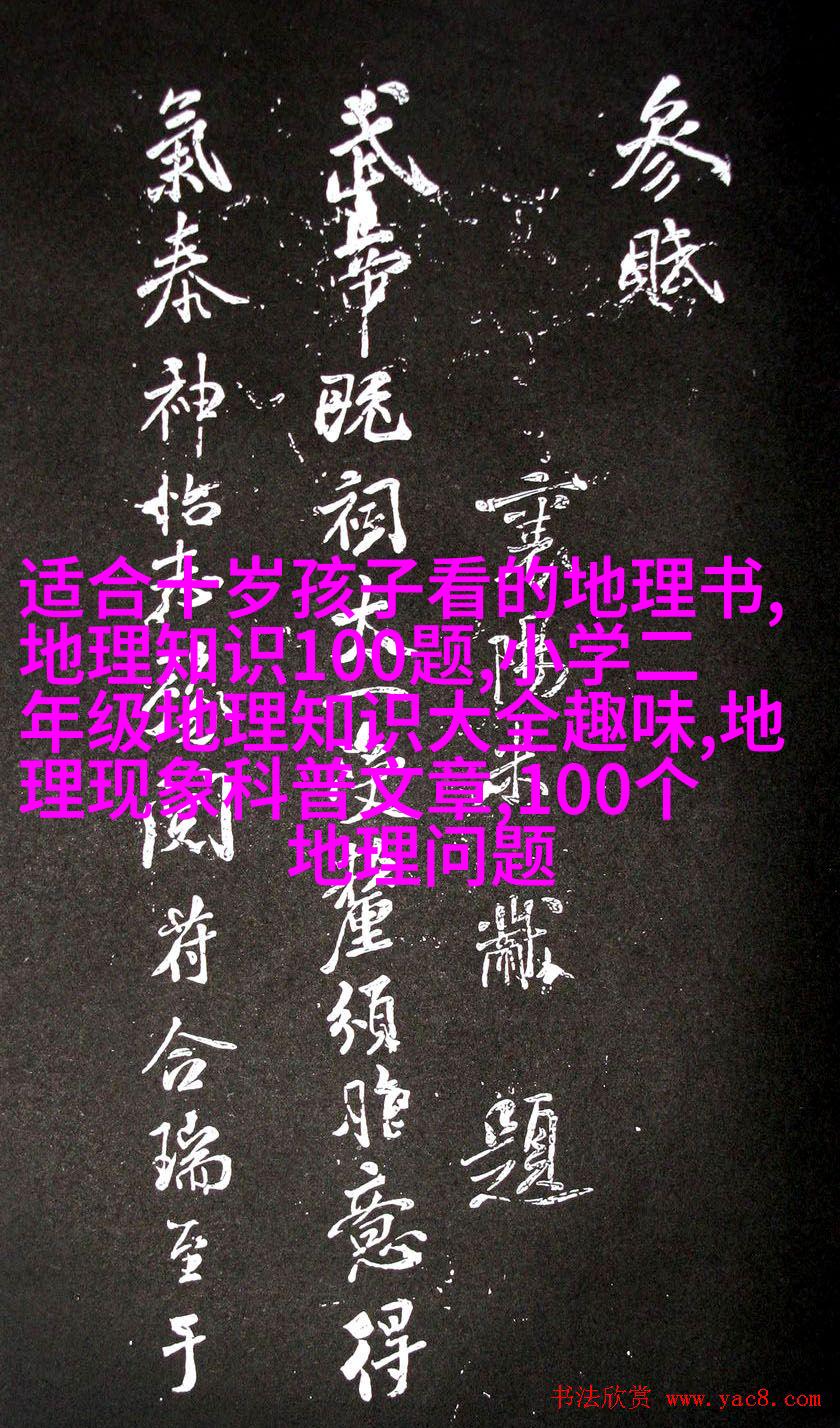 參賦
襄陽米黻題
武帝既祠太一受釐頒胙意得
氣泰神怡閱符合瑞至于
适合十岁孩子看的地理书,
地理知识100题,小学二
年级地理知识大全趣味,地
理现象科普文章,100个
地理问题
书法欣赏 www.yac8.com